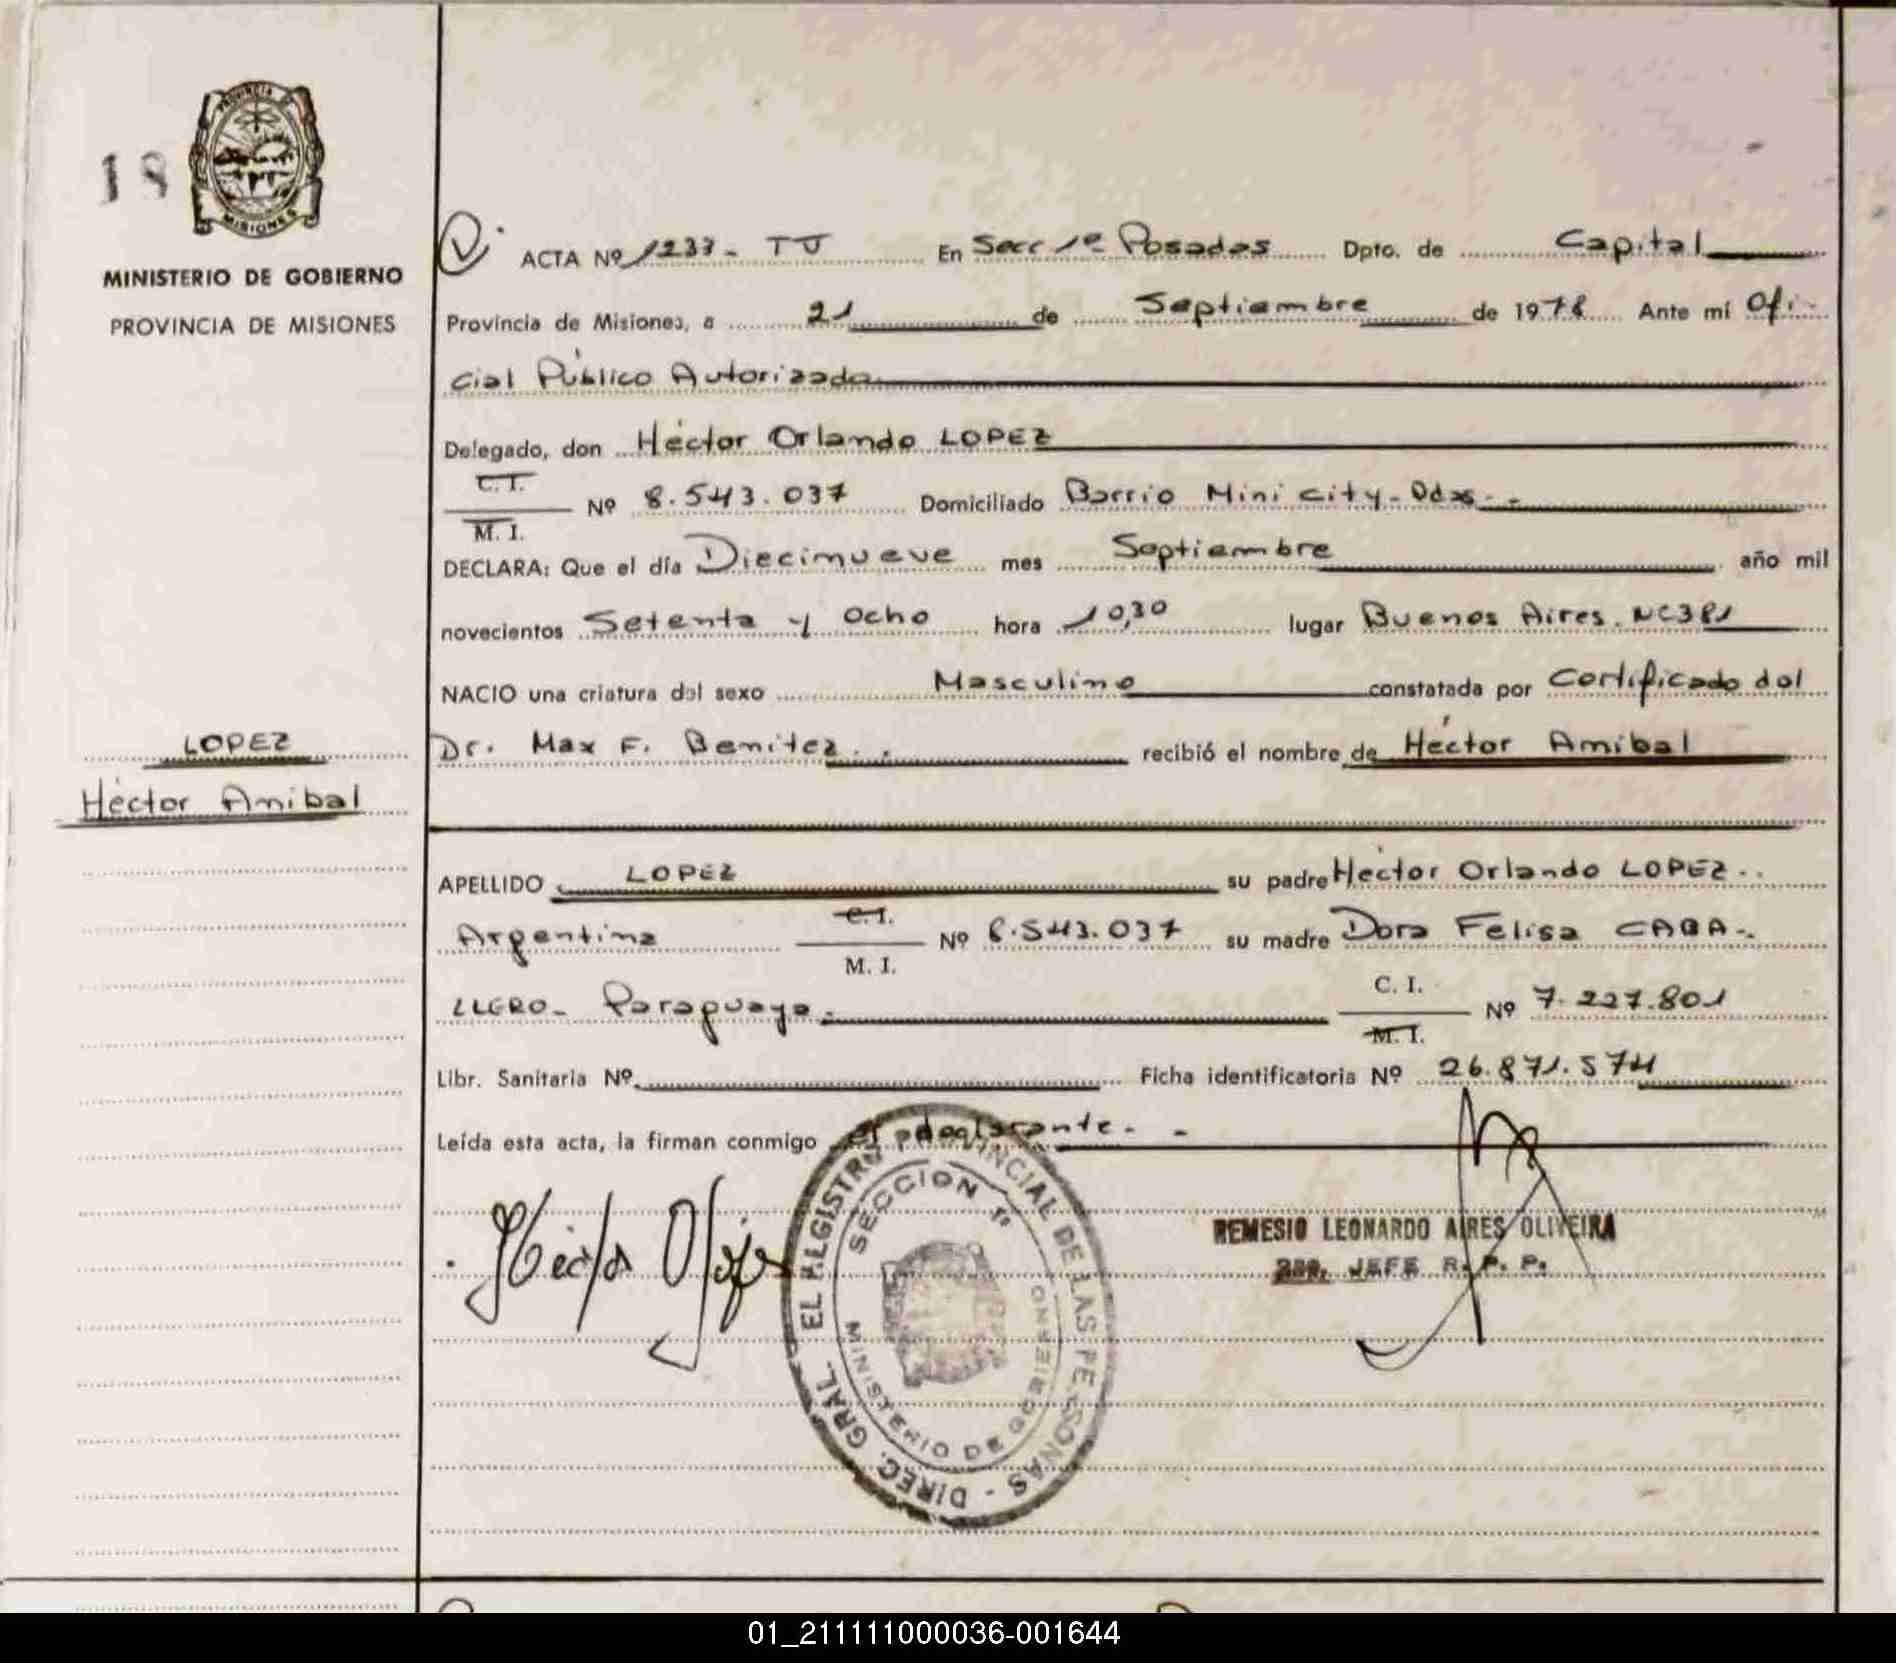 18
PROVINCIA DE
MISIONES
MINISTERIO DE GOBIERNO
PROVINCIA DE MISIONES
LOPEZ
Héctor Anibal
ACTA Nº 1233- TJ En Secc 1º Posadas Dpto. de Capital
Provincia de Misiones, a 21 de Septiembre de 1978 Ante mí Ofi-
cial Público Autorizado
Delegado, don Héctor Orlando LOPEZ
C. I.
Nº 8.543.037 Domiciliado Barrio Mini city- Pdas.-
M. I.
DECLARA: Que el día Diecinueve mes Septiembre año mil
novecientos Setenta y Ocho hora 10,30 lugar Buenos Aires. NC381
NACIO una criatura del sexo Masculino constatada por Certificado del
Dr. Max F. Benitez.. recibió el nombre de Héctor Anibal
APELLIDO LOPEZ su padre Héctor Orlando LOPEZ..
C. I.
Argentina Nº 8.543.037 su madre Dora Felisa CABA-.
M. I.
C. I.
LLERO- Paraguaya. Nº 7.227.801
M. I.
Libr. Sanitaria Nº Ficha identificatoria Nº 26.871.574
Leída esta acta, la firman conmigo el declarante. -
DIREC. GRAL. EL REGISTRO PROVINCIAL DE LAS PERSONAS -
SECCION 1º
MINISTERIO DE GOBIERNO
REMESIO LEONARDO AIRES OLIVEIRA
2do. JEFE R. P. P.
01_211111000036-001644